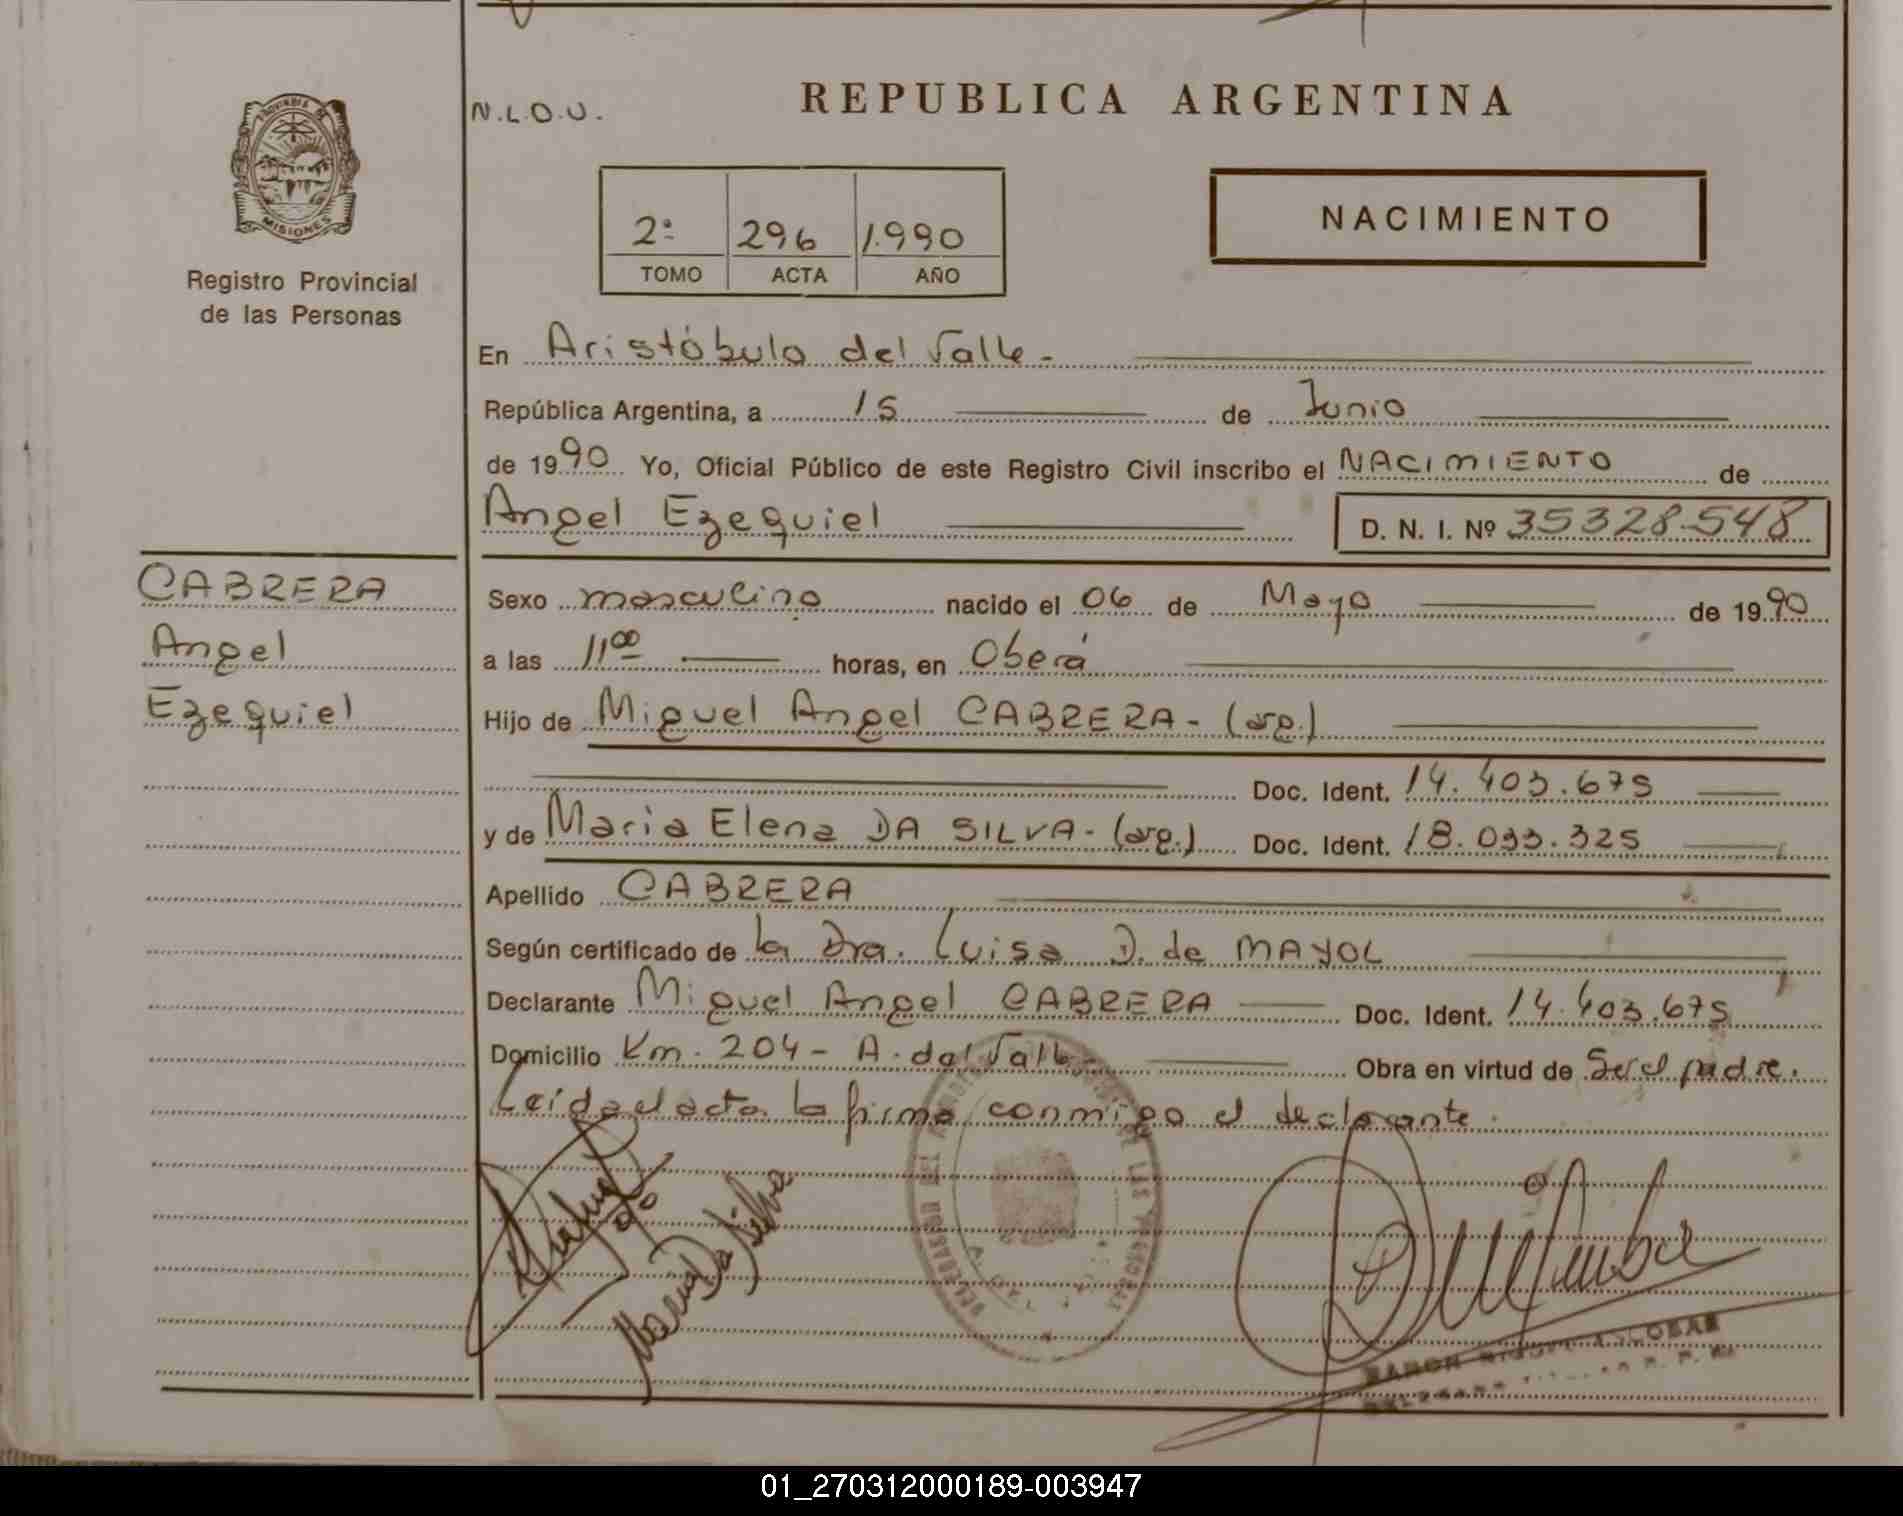 N.L.O.U.
REPUBLICA ARGENTINA
PROVINCIA DE
MISIONES
Registro Provincial
de las Personas
2ª 296 1.990
TOMO ACTA AÑO
NACIMIENTO
En Aristóbulo del Valle.-
República Argentina, a 15 de Junio
de 1990 Yo, Oficial Público de este Registro Civil inscribo el NACIMIENTO de
Angel Ezequiel D. N. I. Nº 35328.548
CABRERA
Angel
Ezequiel
Sexo masculino nacido el 06 de Mayo de 1990
a las 11⁰⁰ horas, en Oberá
Hijo de Miguel Angel CABRERA - (arg.)
Doc. Ident. 14.403.675
y de Maria Elena DA SILVA - (arg.) Doc. Ident. 18.033.325
Apellido CABRERA
Según certificado de la Dra. Luisa D. de MAYOL
Declarante Miguel Angel CABRERA Doc. Ident. 14.403.675
Domicilio Km. 204 - A. del Valle Obra en virtud de Ser el padre.
Leida el acta la firma conmigo el declarante.
Maria Da Silva
RAMON
01_270312000189-003947